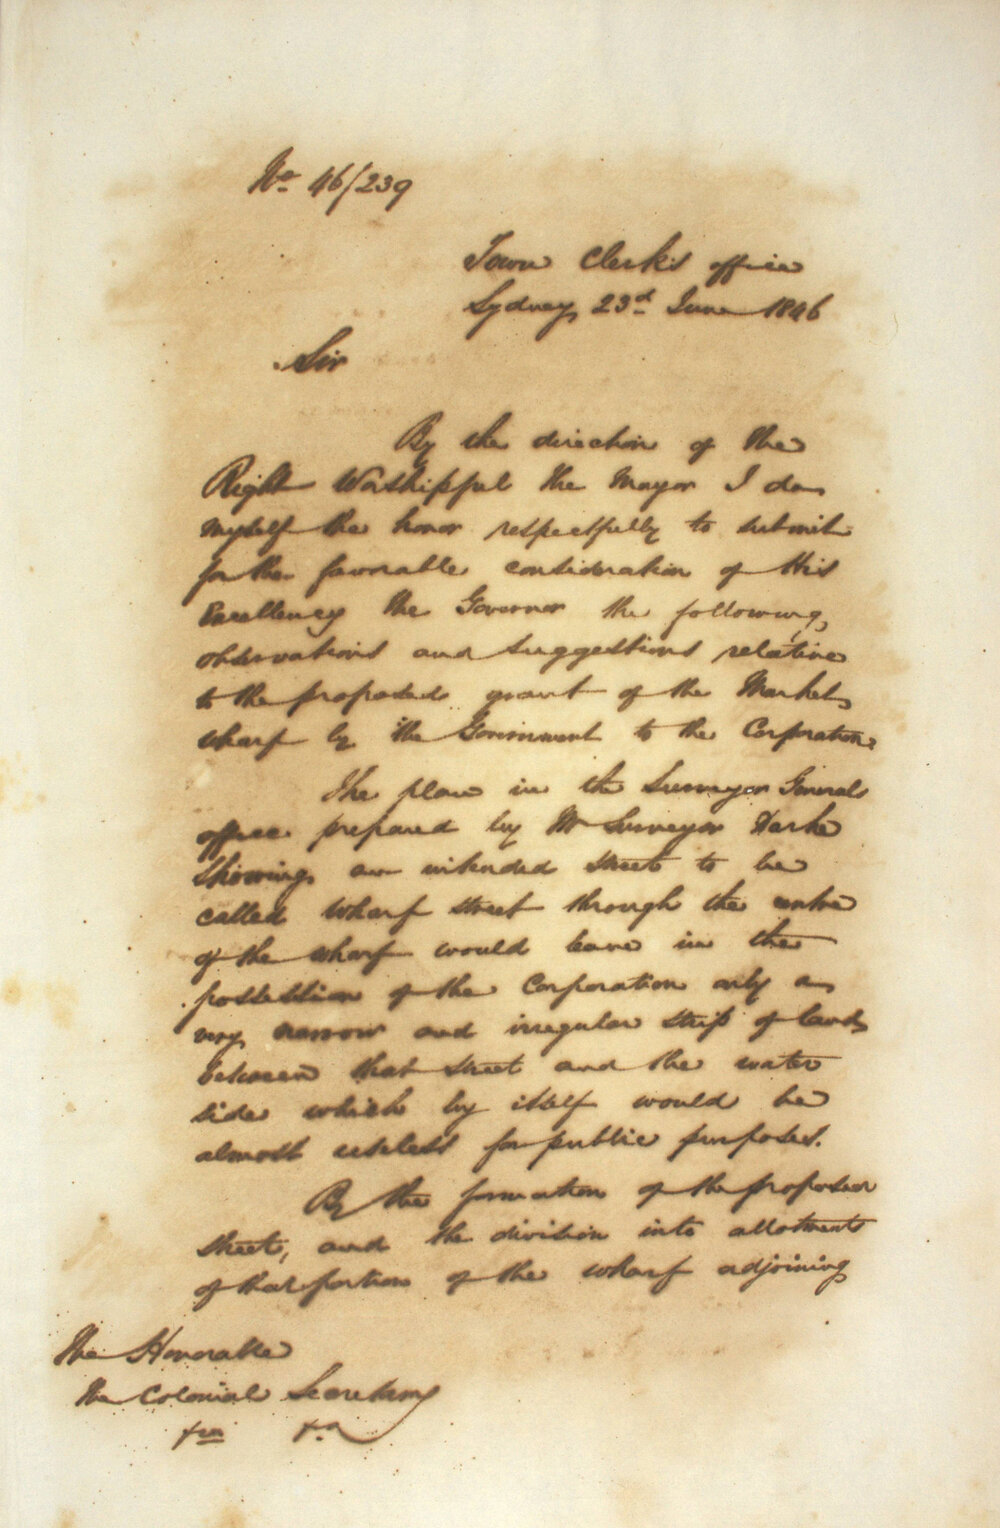 No. 46/239
Town Clerk's office
Sydney 23d June 1846
Sir
By the direction of the
Right Worshipful the Mayor I do
myself the honor respectfully to submit
for the favorable consideration of His
Excellency the Governor the following
observations and suggestions relative
to the proposed grant of the Market
wharf by the Government to the Corporation.
The plan in the Surveyor Generals
office prepared by Mr Surveyor Darke
showing an intended street to be
called Wharf street through the centre
of the wharf would leave in the
possession of the Corporation only a
very narrow and irregular strip of land
between that street and the water
side which by itself would be
almost useless for public purposes.
By the formation of the proposed
street, and the division into allotments
of that portion of the wharf adjoining
The Honorable
the Colonial Secretary